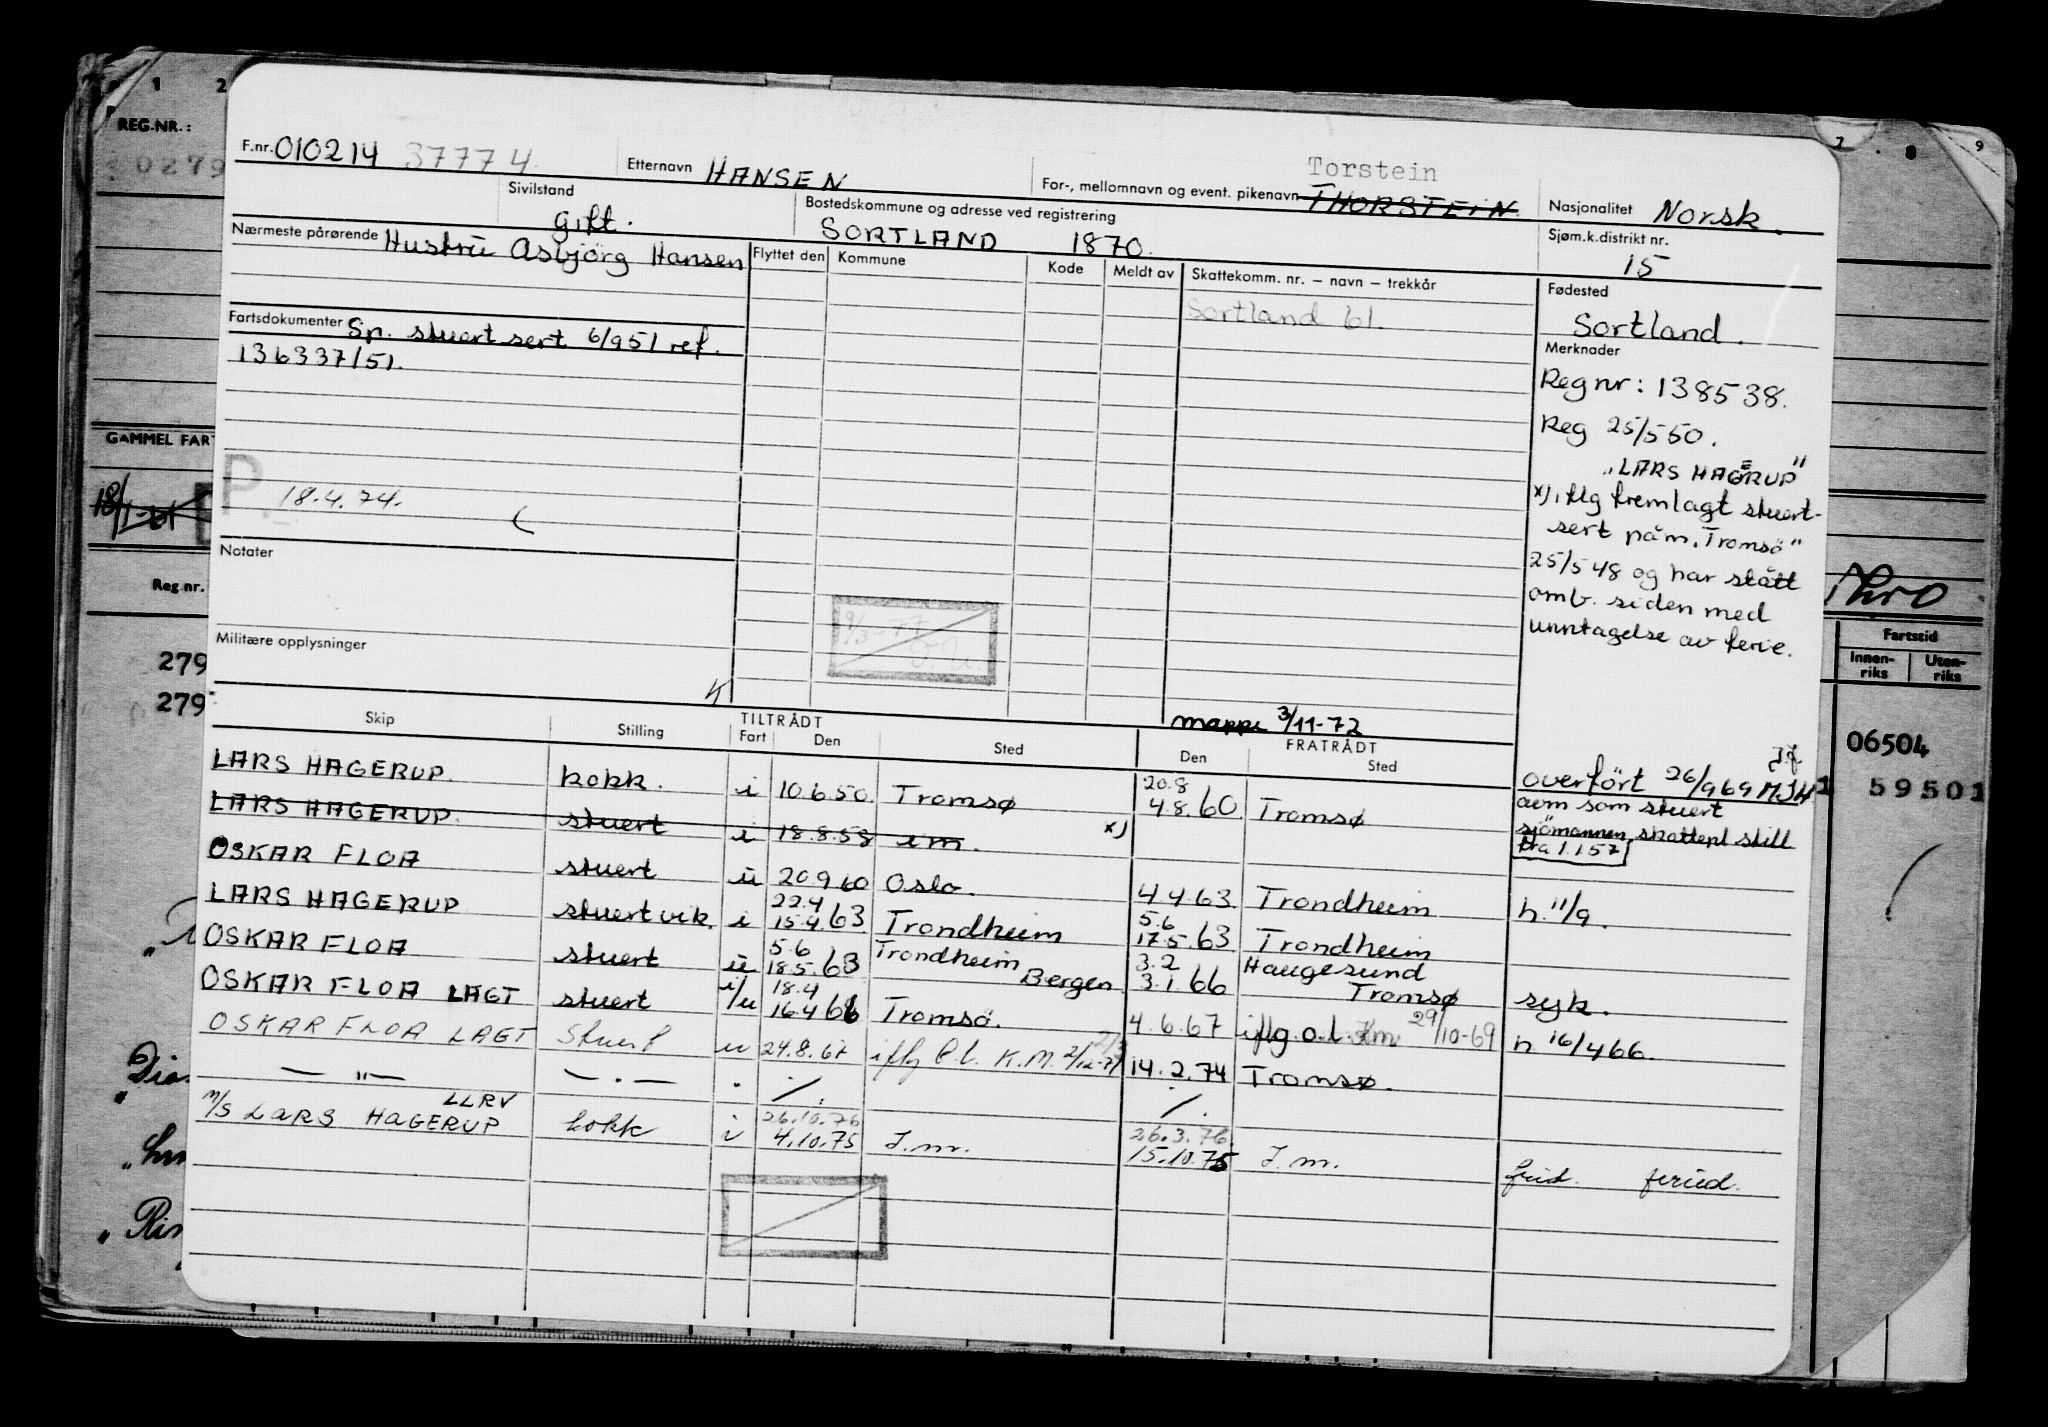 1 2 7 . 8 9
REG.NR.:
0279
F.nr. 010214 37774
Etternavn HANSEN
Torstein
For-, mellomnavn og event. pikenavn THORSTEIN
Nasjonalitet Norsk.
Sivilstand
Gift.
Bostedskommune og adresse ved registrering
SORTLAND 1870.
Sjøm.k.distrikt nr.
15
Nærmeste pårørende Hustru Asbjörg Hansen
Flyttet den Kommune Kode Meldt av Skattekomm. nr. – navn – trekkår
Sortland 61.
Fødested
Sortland.
Fartsdokumenter Sp. stuert sert 6/951 ref.
136337/51.
Merknader
Reg nr: 138538.
Reg 25/550.
„LARS HAGERUP"
x) iflg fremlagt stuert-
sert påm. Tromsö"
25/548 og har stått
omb. siden med
unntagelse av ferie.
GAMMEL FAR
18/1-61
P 18.4.74.
Notater
Reg.nr.
9/3-77
Militære opplysninger
279
279
Fartstid
Innen-riks Uten-riks
06504
59501
K
mappe 3/11-72
Skip Stilling TILTRÅDT Fart Den Sted FRATRÅDT Den Sted
overført 26/969 MJH
LARS HAGERUP. kokk. i 10.6.50. Tromsø 20.8 4.8.60 Tromsø
avm som stuert
LARS HAGERUP. stuert i 18.8.58 im. x)
sjömannen skattepl still
fra 1.1.57
OSKAR FLOA stuert u 20960 Oslo. 4.4.63 Trondheim h. 11/9.
LARS HAGERUP stuert vik. i 22.4 15.4.63 Trondheim 5.6 17.5.63 Trondheim
OSKAR FLOA stuert u 5.6 18.5.63 Trondheim Bergen 3.2 3.1.66 Haugesund Tromsø syk.
OSKAR FLOA LAGT stuert i/u 18.4 16.4.66 Tromsö. 4.6.67 iflg. o.l. Km 29/10-69 h 16/466.
OSKAR FLOA LAGT Stuert u 24.8.67 iflg b.l. K.M. 2/12-71 14.2.74 Tromsø.
— " — — . — . /. /.
LLRV
m/s LARS HAGERUP kokk i 26.10.76 4.10.75 I.m. 26.3.76. 15.10.75 I.m. frid. feried.